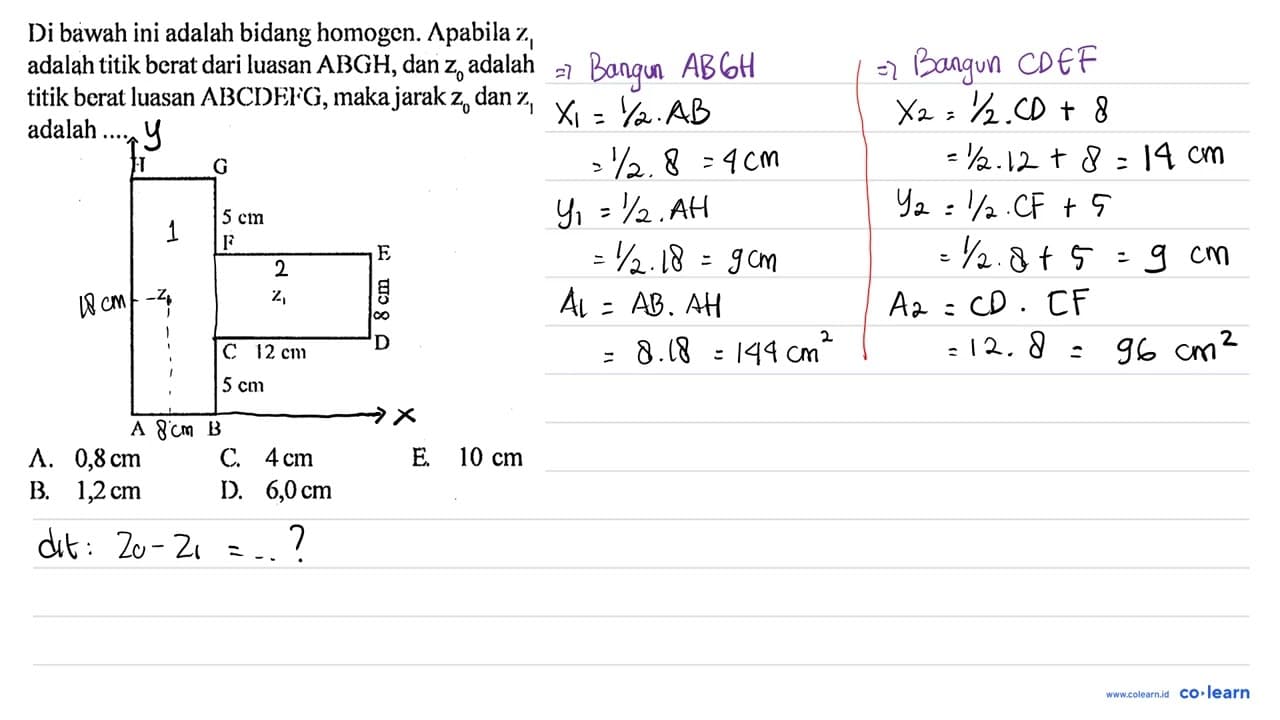 Di bawah ini adalah bidang homogen. Apabila z₁
adalah titik berat dari luasan ABGH, dan z₀ adalah
titik berat luasan ABCDEFG, maka jarak z₀ dan z₁
adalah ....
y
H G
1
5 cm
F
E
2
z₁
18 cm
z₁
8 cm
C 12 cm
D
5 cm
x
A 8 cm B
A. 0,8 cm C. 4 cm E. 10 cm
B. 1,2 cm D. 6,0 cm
dit: Z₀ - Z₁ = ... ?
=> Bangun ABGH
X₁ = 1/2 . AB
= 1/2 . 8 = 4 cm
Y₁ = 1/2 . AH
= 1/2 . 18 = 9 cm
A₁ = AB . AH
= 8.18 = 144 cm²
=> Bangun CDEF
X₂ = 1/2 . CD + 8
= 1/2 . 12 + 8 = 14 cm
Y₂ = 1/2 . CF + 5
= 1/2 . 8 + 5 = 9 cm
A₂ = CD . CF
= 12 . 8 = 96 cm²
www.colearn.id co·learn